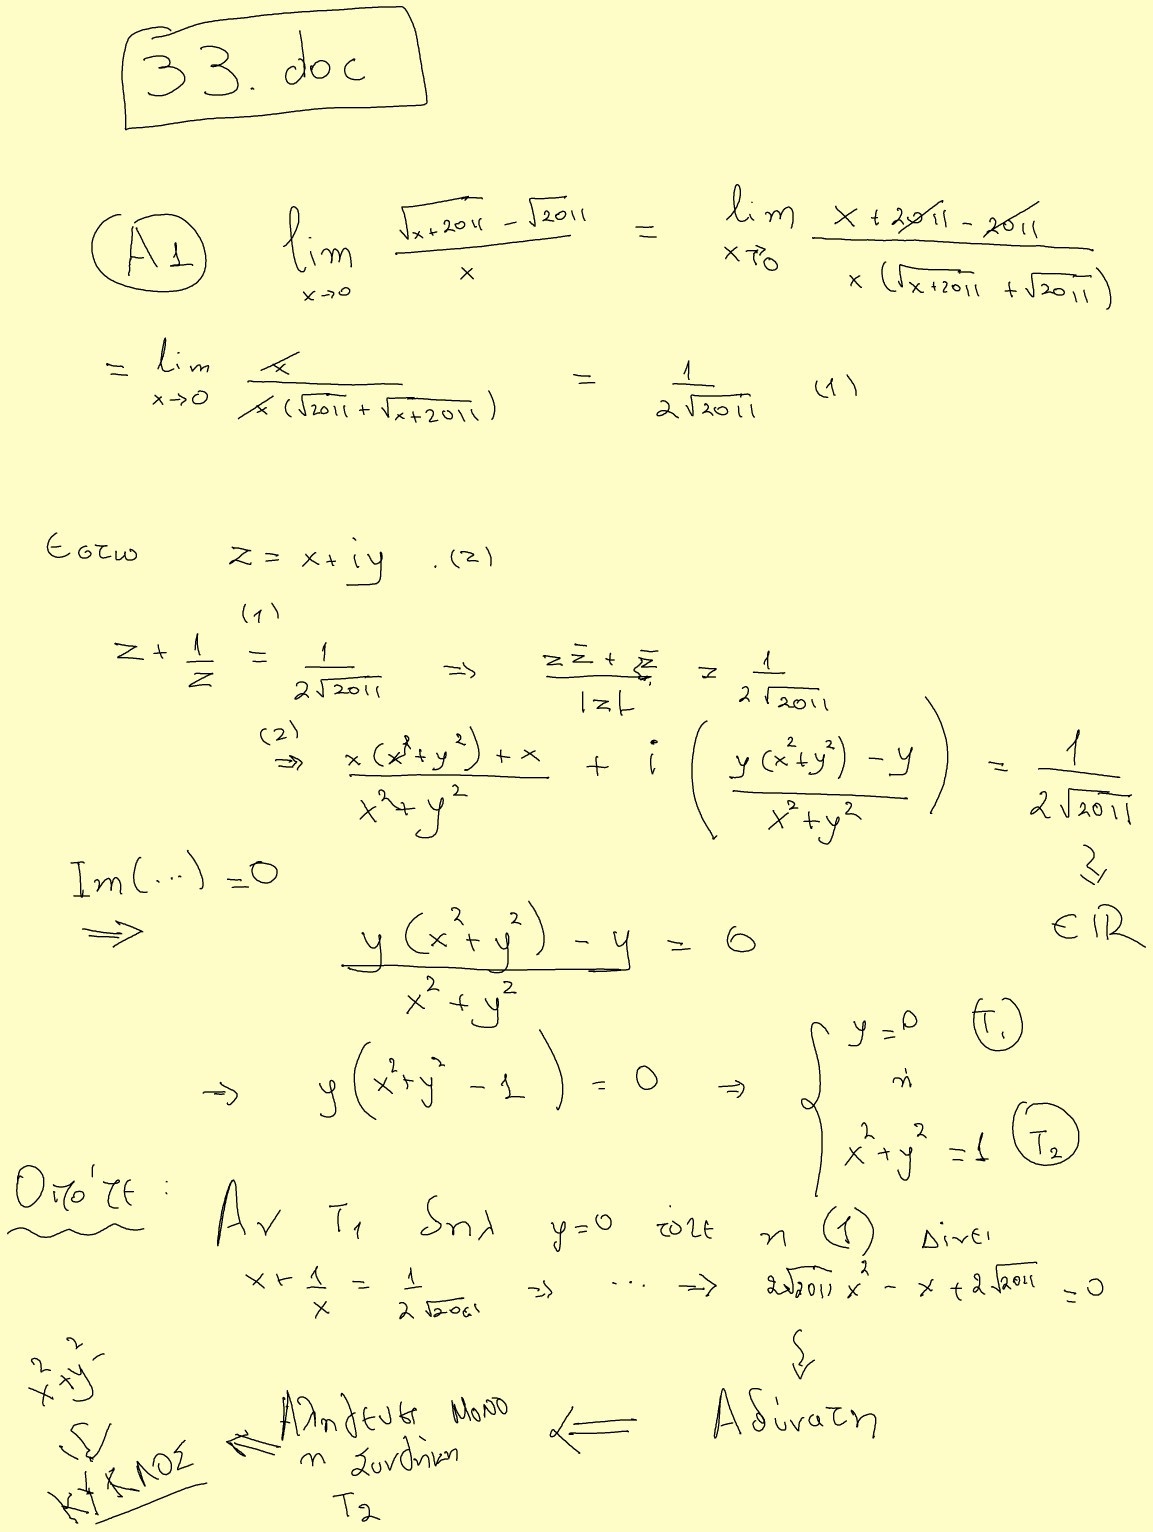 33. doc
A1 lim x→0 (√x+2011 - √2011)/x = lim x→0 (x + 2011 - 2011)/(x (√x+2011 + √2011))
= lim x→0 x/(x (√2011 + √x+2011)) = 1/(2√2011) (1)
Εστω z = x + iy . (2)
z + 1/z =(1) 1/(2√2011) ⇒ (z z̄ + z̄)/|z| = 1/(2√2011)
(2) ⇒ (x (x²+y²) + x)/(x²+y²) + i ( (y (x²+y²) - y)/(x²+y²) ) = 1/(2√2011)
Im(...) = 0
∈ ℝ
⇒ (y (x²+y²) - y)/(x²+y²) = 0
⇒ y (x²+y² - 1) = 0 ⇒ { y = 0 T1
ή
x²+y² = 1 T2
Οπότε : Αν T1 δηλ y=0 τότε η (1) Δίνει
x + 1/x = 1/(2√2011) ⇒ ... ⇒ 2√2011 x² - x + 2√2011 = 0
Αδύνατη
⇐ Αληθευει ΜΟΝΟ
η Συνθήκη
T2
⇐ x²+y²
ΚΥΚΛΟΣ